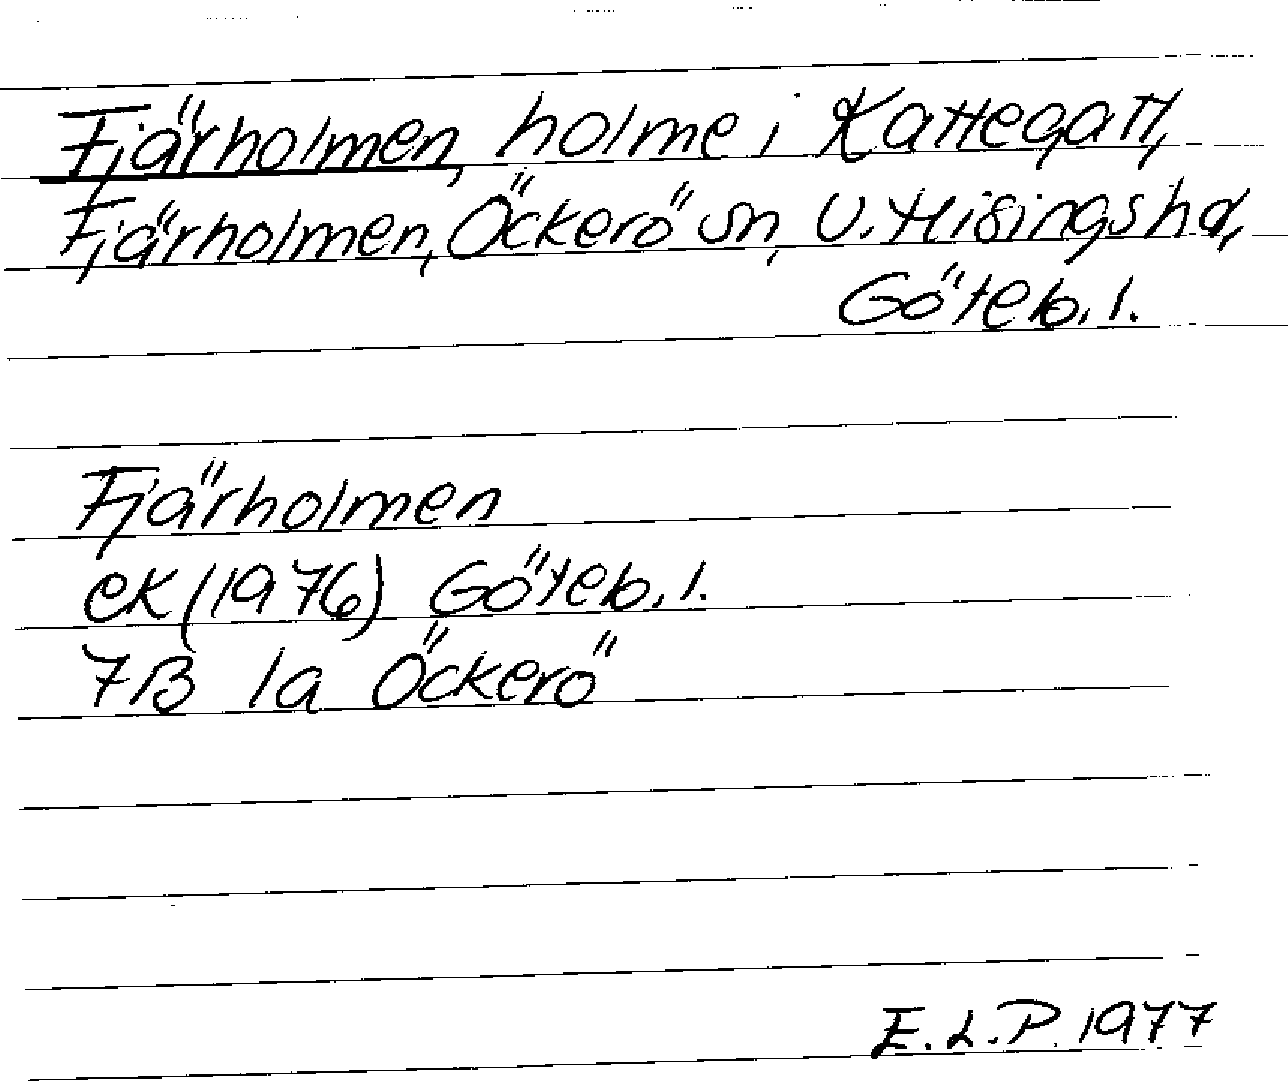 Fjärholmen, holme i Kattegatt,
Fjärholmen, Öckerö sn, V. Hisings hd,
Göteb. l.
Fjärholmen
ek (1976) Göteb. l.
7B 1a Öckerö
E. L. P. 1977